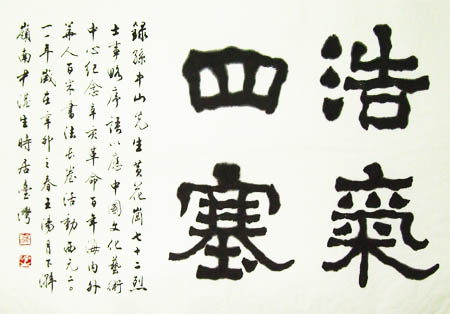 浩氣
四塞
錄孫中山先生黃花崗七十二烈
士事略序語以應中國文化藝術
中心紀念辛亥革命百年海內外
華人百米書法長卷活動西元二〇
一一年歲在辛卯之春王陽月下澣
嶺南尹生時居臺灣